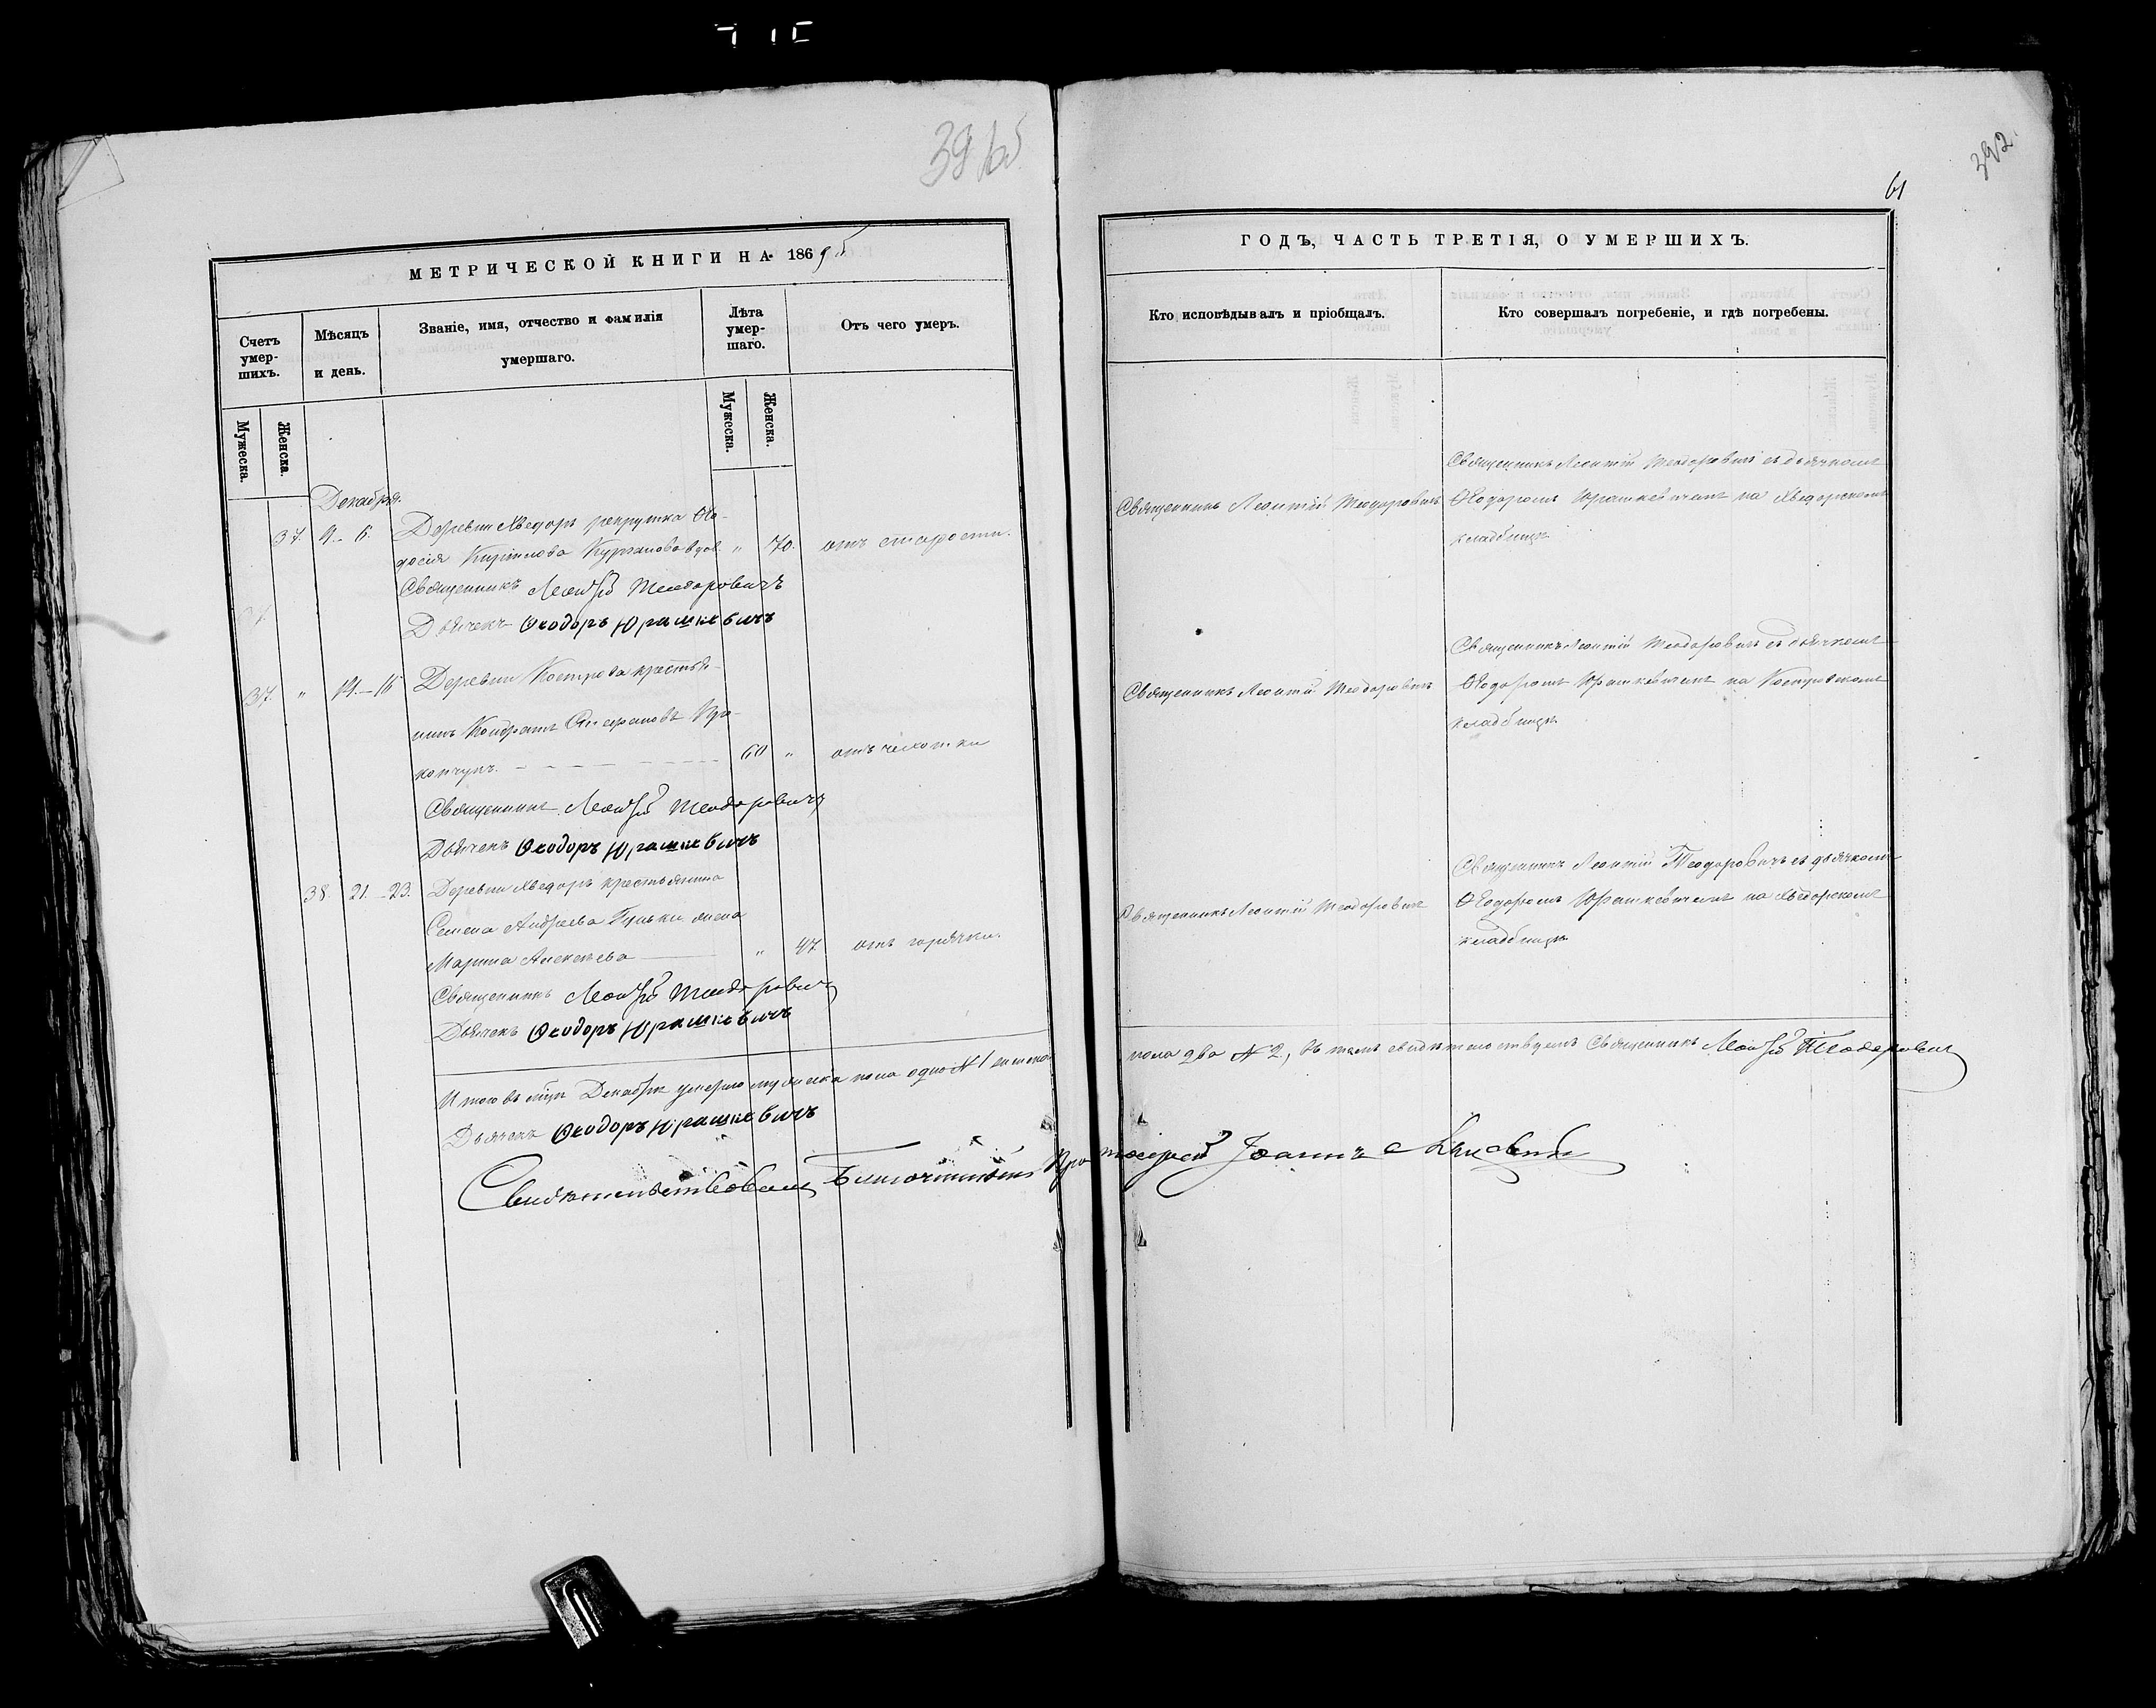 3965
МЕТРИЧЕСКОЙ КНИГИ НА 1869
Счетъ умер-шихъ.
Мѣсяцъ и день.
Званіе, имя, отчество и фамилія умершаго.
Лѣта умер-шаго.
Отъ чего умеръ.
Мужеска.
Женска.
Мужеска.
Женска.
Декабря.
37. 4.–6. Деревни Хведоръ рекрутка Ѳео-
досія Кирилова вдов. „ 70. отъ старости.
Священникъ Леонтій Теодоровичъ
Дьячекъ Ѳеодоръ Юрашкевичъ
37. „ 14.–16 Деревни Кострова крестья-
нинъ Кондратъ Стефановъ Про-
копчукъ. 60 „ отъ чахотки
Священникъ Леонтій Теодоровичъ
Дьячекъ Ѳеодоръ Юрашкевичъ
38. 21.–23. Деревни Хведоръ крестьянина
Семена Андреева жена
Марина Алексѣева „ 47 отъ горячки.
Священникъ Леонтій Теодоровичъ
Дьячекъ Ѳеодоръ Юрашкевичъ
Итого въ мцѣ Декабрѣ умерло мужеска пола одно № 1 женска
Дьячекъ Ѳеодоръ Юрашкевичъ
Свидѣтельствовалъ Благочинный Про
392
61
ГОДЪ, ЧАСТЬ ТРЕТІЯ, О УМЕРШИХЪ.
Кто исповѣдывалъ и пріобщалъ.
Кто совершалъ погребеніе, и гдѣ погребены.
Священникъ Леонтій Теодоровичъ
Священникъ Леонтій Теодоровичъ съ дьячкомъ
Ѳеодоромъ Юрашкевичемъ на Хведорскомъ
кладбищѣ
Священникъ Леонтій Теодоровичъ
Священникъ Леонтій Теодоровичъ съ дьячкомъ
Ѳеодоромъ Юрашкевичемъ на Костровскомъ
кладбищѣ
Священникъ Леонтій Теодоровичъ
Священникъ Леонтій Теодоровичъ съ дьячкомъ
Ѳеодоромъ Юрашкевичемъ на Хведорскомъ
кладбищѣ
пола два № 2, въ томъ свидѣтельствуемъ Священникъ Леонтій Теодоровичъ
тоіерей Іоаннъ